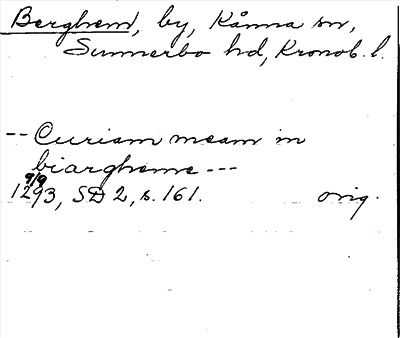 Berghem, by, Kånna sn,
Sunnerbo hd, Kronob. l.
-- Curiam meam in
biargheme ---
9/9
1293, SD 2, s. 161. orig.